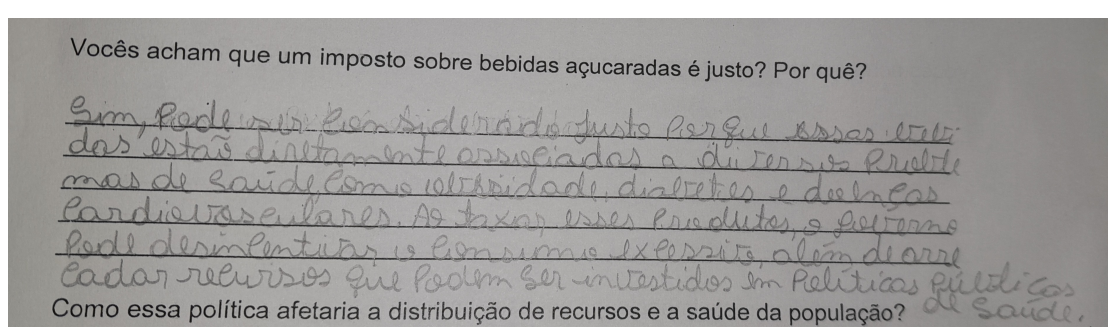 Vocês acham que um imposto sobre bebidas açucaradas é justo? Por quê?
Sim, Pode ser considerado justo Porque essas bebi-
das estão diretamente associadas a diversos Proble
mas de saúde como obesidade, diabetes e doenças
Cardiovasculares. Ao taxar esses Produtos, o governo
Pode desincentivar o consumo excessivo, além de arre
cadar recursos que Podem ser investidos em Políticas Públicas
de saúde.
Como essa política afetaria a distribuição de recursos e a saúde da população?